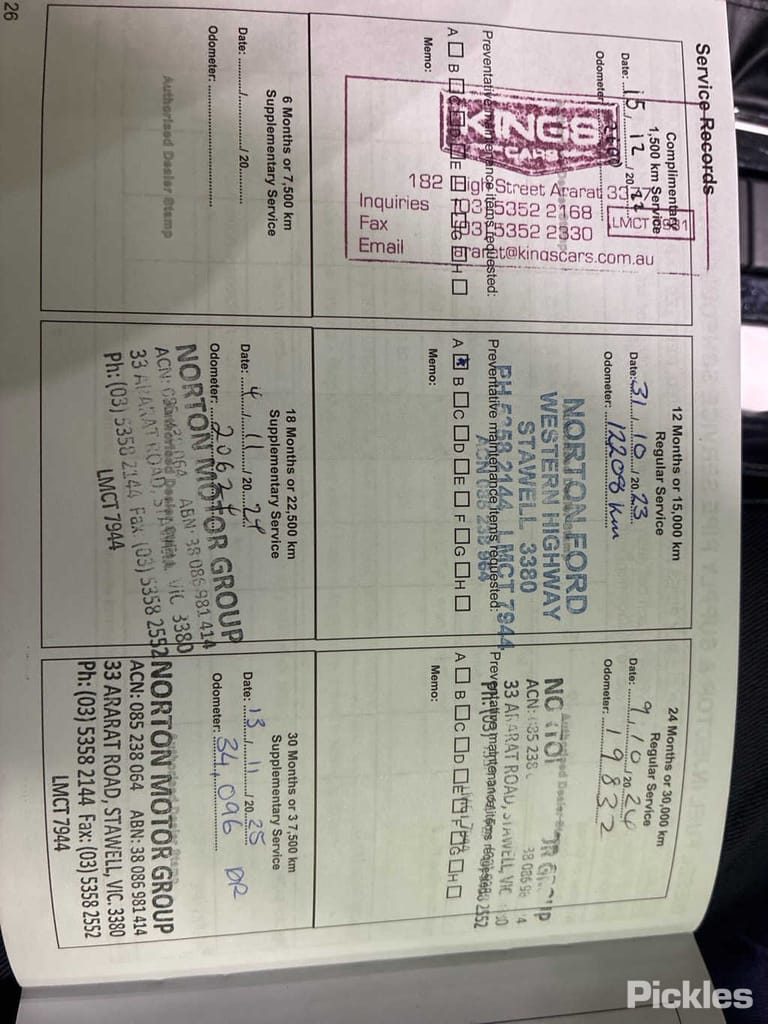 Service Records
Complimentary
1,500 km Service
Date: 15/12/2022
Odometer:
KINGS
CARS
182 High Street Ararat
LMCT
Inquiries (03) 5352 2168
Fax (03) 5352 2330
Email ararat@kingscars.com.au
Preventative maintenance items requested:
A B C D E F G H
Memo:
12 Months or 15,000 km
Regular Service
Date: 31/10/2023
Odometer: 12208 km
NORTON FORD
WESTERN HIGHWAY
STAWELL 3380
PH 5358 2144 LMCT 7944
Preventative maintenance items requested:
A B C D E F G H
Memo:
24 Months or 30,000 km
Regular Service
Date: 9/10/2024
Odometer: 19832
33 ARARAT ROAD, STAWELL, VIC
Preventative maintenance items requested:
A B C D E F G H
Memo:
6 Months or 7,500 km
Supplementary Service
Date: ........./........./ 20.........
Odometer: ..............................
Authorised Dealer Stamp
18 Months or 22,500 km
Supplementary Service
Date: 4/11/2024
Odometer:
NORTON MOTOR GROUP
ABN: 38 086 981 414
33 ARARAT ROAD, STAWELL, VIC 3380
Ph: (03) 5358 2144 Fax (03) 5358 2552
LMCT 7944
30 Months or 37,500 km
Supplementary Service
Date: 13/11/2025
Odometer: 34,096 DR
NORTON MOTOR GROUP
ACN: 085 238 064 ABN: 38 086 981 414
33 ARARAT ROAD, STAWELL, VIC. 3380
Ph: (03) 5358 2144 Fax: (03) 5358 2552
LMCT 7944
26
Pickles